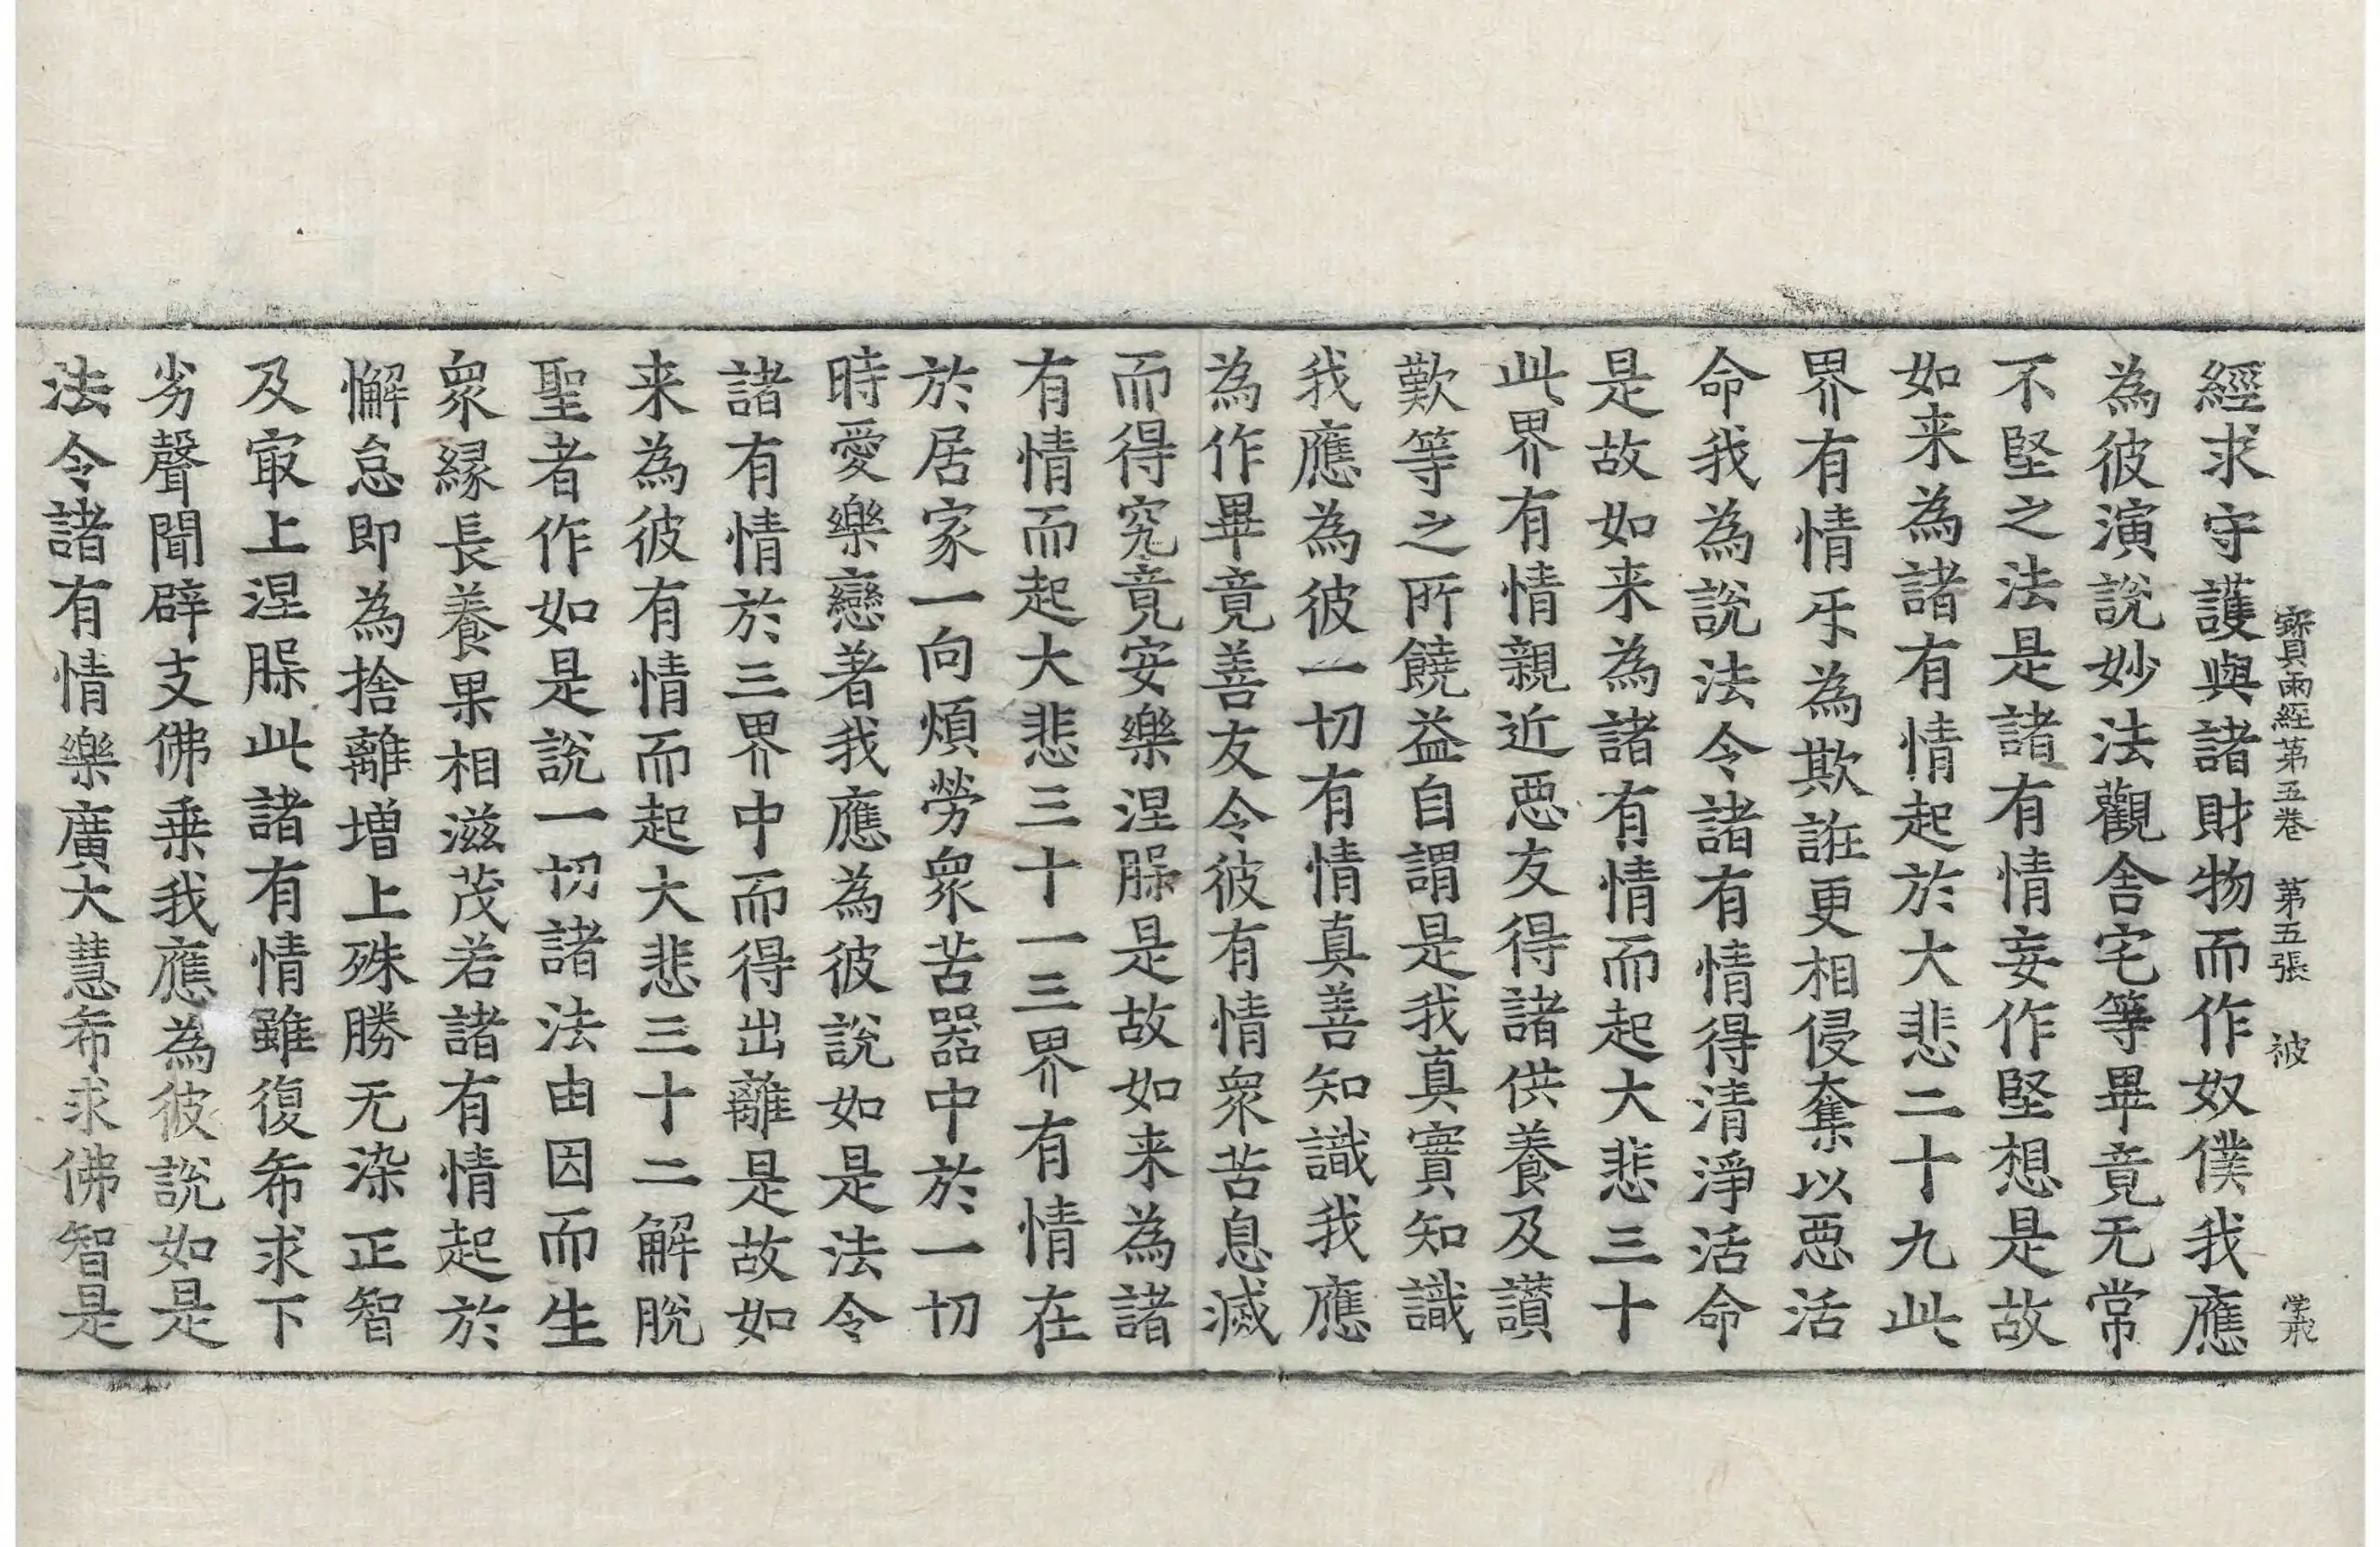 寳雨經第五卷 第五張 被
經求守護與諸財物而作奴僕我應
為彼演說妙法觀舍宅等畢竟无常
不堅之法是諸有情妄作堅想是故
如来為諸有情起於大悲二十九此
界有情㸦為欺誑更相侵奪以惡活
命我為說法令諸有情得清淨活命
是故如来為諸有情而起大悲三十
此界有情親近惡友得諸供養及讃
歎等之所饒益自謂是我真實知識
我應為彼一切有情真善知識我應
為作畢竟善友令彼有情衆苦息滅
而得究竟安樂涅槃是故如来為諸
有情而起大悲三十一三界有情在
於居家一向煩勞衆苦器中於一切
時愛樂戀著我應為彼說如是法令
諸有情於三界中而得出離是故如
来為彼有情而起大悲三十二解脫
聖者作如是說一切諸法由因而生
衆緣長養果相滋茂若諸有情起於
懈怠即為捨離增上殊勝无染正智
及㝡上涅槃此諸有情雖復希求下
劣聲聞辟支佛乗我應為彼說如是
法令諸有情樂廣大慧希求佛智是